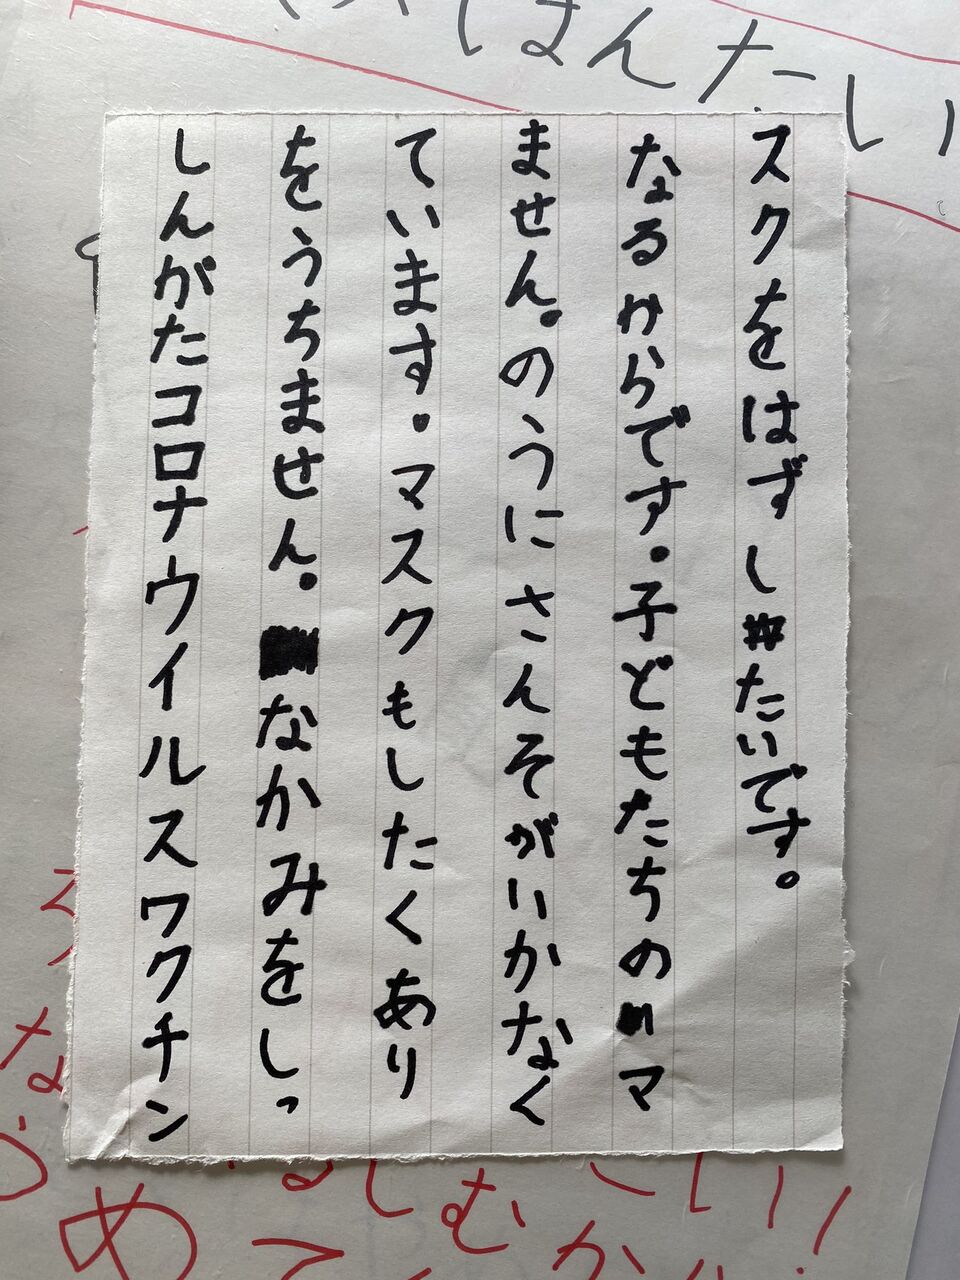 はんたい
しんがたコロナウイルスワクチン
をうちません。なかみをしっ
ています。マスクもしたくあり
ません。のうにさんそがいかなく
なるからです。子どもたちのマ
スクをはずしたいです。